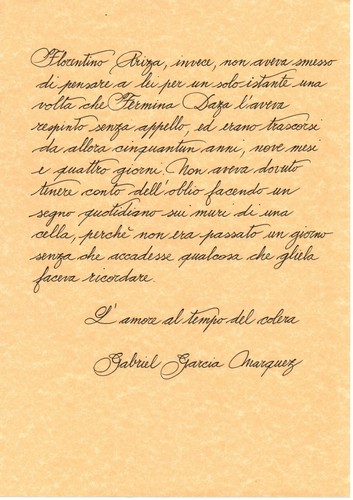 Florentino Ariza, invece, non aveva smesso
di pensare a lei per un solo istante una
volta che Fermina Daza l'aveva
respinto senza appello, ed erano trascorsi
da allora cinquantun anni, nove mesi
e quattro giorni. Non aveva dovuto
tenere conto dell'oblio facendo un
segno quotidiano sui muri di una
cella, perchè non era passato un giorno
senza che accadesse qualcosa che gliela
faceva ricordare.
L'amore al tempo del colera
Gabriel Garcia Marquez